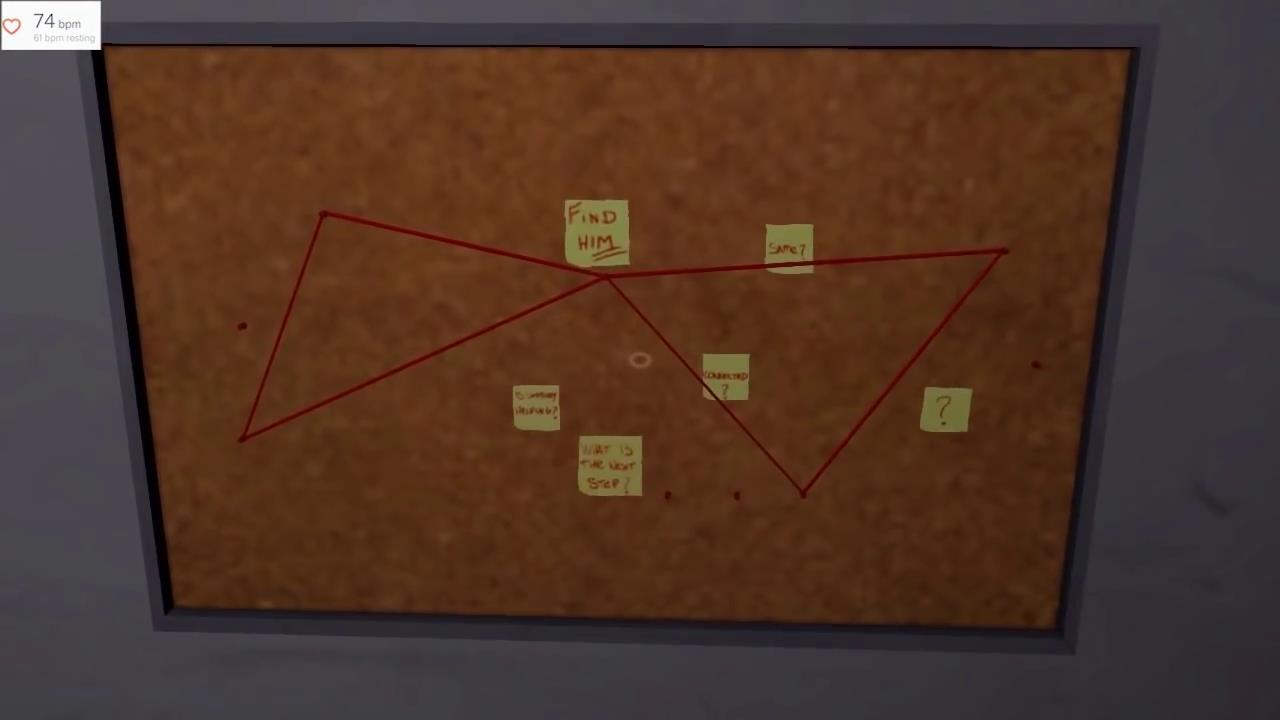 74 bpm
61 bpm resting
FIND
HIM
SAME?
CONNECTED
?
IS SOMEBODY
HELPING?
?
WHAT IS
THE NEXT
STEP?